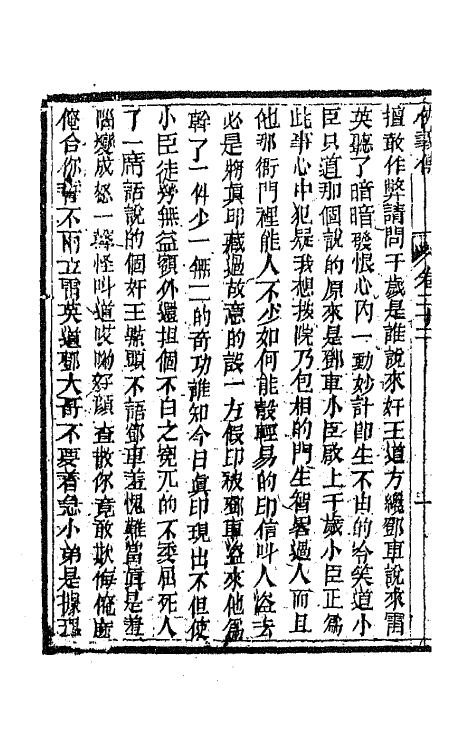 俠義傳 卷二十二
擅敢作獘請問千歲是誰說來奸王道方纔鄧車說來雷
英聽了暗暗發恨心內一動妙計卽生不由的冷笑道小
臣只道那個說的原來是鄧車小臣啟上千歲小臣正爲
此事心中犯疑我想按院乃包相的門生智畧過人而且
他那衙門裡能人不少如何能彀輕易的印信叫人盜去
必是將眞印藏過故意的設一方假印被鄧車盜來他爲
幹了一件少一無二的奇功誰知今日眞印現出不但使
小臣徒勞無益額外還担個不白之寃兀的不委屈死人
了一席話說的個奸王㸃頭不語鄧車羞愧難當眞是羞
惱變成怒一聲怪叫道哎喲好顏查散你竟敢欺侮俺麽
俺合你誓不兩立雷英道鄧大哥不要着急小弟是據理